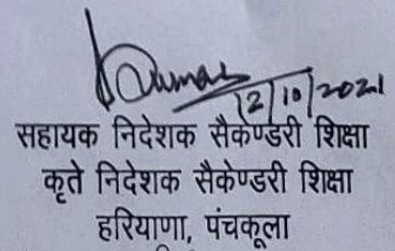 12/10/2021
सहायक निदेशक सैकेण्डरी शिक्षा
कृते निदेशक सैकेण्डरी शिक्षा
हरियाणा, पंचकूला